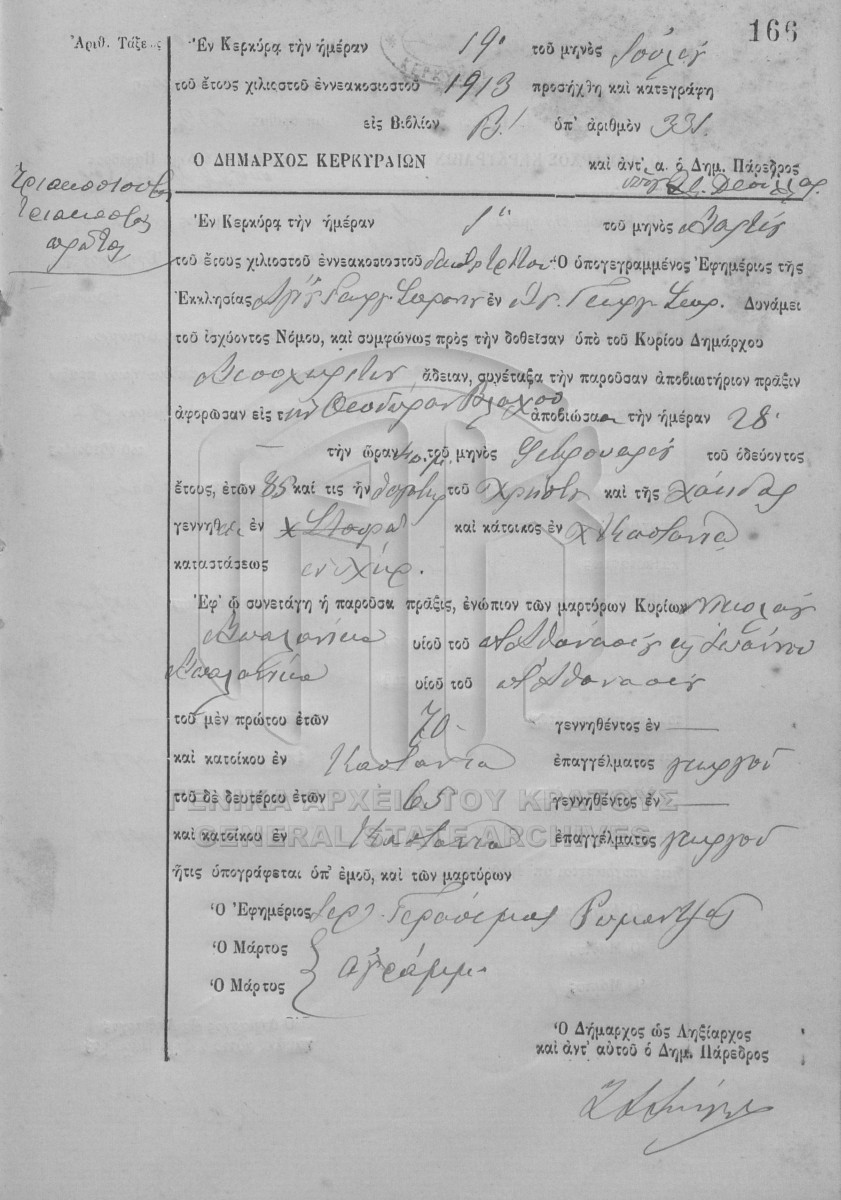 166
Ἀριθ. Τάξεως
Ἐν Κερκύρᾳ τὴν ἡμέραν 19 τοῦ μηνὸς Ἰουλίου
τοῦ ἔτους χιλιοστοῦ ἐννεακοσιοστοῦ 1913 προσήχθη καὶ κατεγράφη
εἰς Βιβλίον Β' ὑπ' ἀριθμὸν 331.
Ο ΔΗΜΑΡΧΟΣ ΚΕΡΚΥΡΑΙΩΝ καὶ ἀντ'. α. ὁ Δημ. Πάρεδρος
Ἐν Κερκύρᾳ τὴν ἡμέραν 1η τοῦ μηνὸς Μαρτίου
τοῦ ἔτους χιλιοστοῦ ἐννεακοσιοστοῦ Ὁ ὑπογεγραμμένος Ἐφημέριος τῆς
Ἐκκλησίας Ἁγίου Γεωργ. ἐν Ἁγ. Γεωργ. Δυνάμει
τοῦ ἰσχύοντος Νόμου, καὶ συμφώνως πρὸς τὴν δοθεῖσαν ὑπὸ τοῦ Κυρίου Δημάρχου
ἄδειαν, συνέταξα τὴν παροῦσαν ἀποβιωτήριον πρᾶξιν
ἀφορῶσαν εἰς τὴν Θεοδώραν Βλάχου ἀποβιώσασαν τὴν ἡμέραν 28
τὴν ὥραν 4 π.μ. τοῦ μηνὸς Φεβρουαρίου τοῦ ὁδεύοντος
ἔτους, ἐτῶν 85 καί τις ἦν θυγάτηρ τοῦ Χρήστου καὶ τῆς Χάιδως
γεννηθ ἐν καὶ κάτοικος ἐν χ Καστανιά
καταστάσεως ἐν χήρ.
Ἐφ' ᾧ συνετάγη ἡ παροῦσα πρᾶξις, ἐνώπιον τῶν μαρτύρων Κυρίων Νικολάου
Μπαλατίκα υἱοῦ τοῦ π. Ἀθανασίου κ Ἰωάννου
Μπαλατίκα υἱοῦ τοῦ π. Ἀθανασίου
τοῦ μὲν πρώτου ἐτῶν 70 γεννηθέντος ἐν
καὶ κατοίκου ἐν Καστανιά ἐπαγγέλματος γεωργοῦ
τοῦ δὲ δευτέρου ἐτῶν 65 γεννηθέντος ἐν
ΓΕΝΙΚΑ ΑΡΧΕΙΑ ΤΟΥ ΚΡΑΤΟΥΣ
GENERAL STATE ARCHIVES
καὶ κατοίκου ἐν Καστανιά ἐπαγγέλματος γεωργοῦ
ἥτις ὑπογράφεται ὑπ' ἐμοῦ, καὶ τῶν μαρτύρων
Ὁ Ἐφημέριος Ἱερ. Γεράσιμος
Ὁ Μάρτυς
ἀγράμμ.
Ὁ Μάρτυς
Ὁ Δήμαρχος ὡς Ληξίαρχος
καὶ ἀντ' αὐτοῦ ὁ Δημ. Πάρεδρος